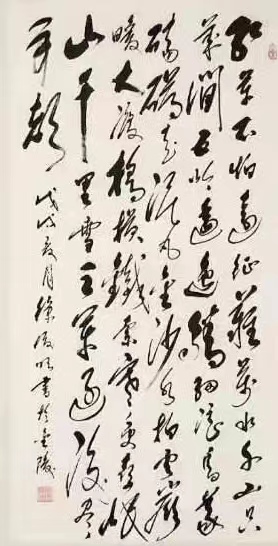 紅軍不怕遠征難萬水千山只
等閒五岭逶迤騰細浪烏蒙
磅礴走泥丸金沙水拍雲崖
暖大渡橋橫鐵索寒更喜岷
山千里雪三軍過後盡
開顏
戊戌夏月徐書於金陵